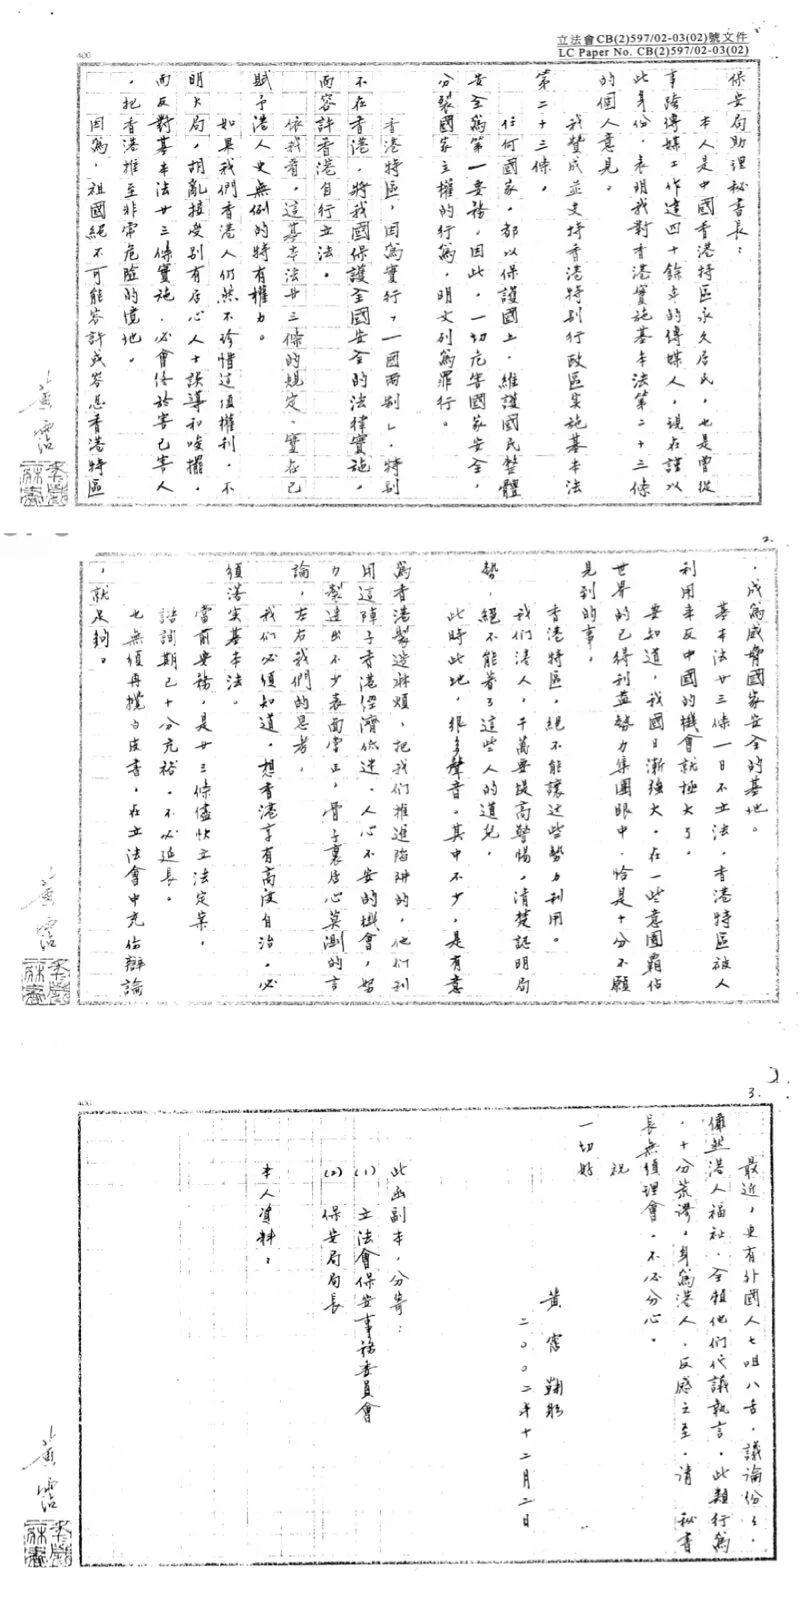 立法會CB(2)597/02-03(02)號文件
LC Paper No. CB(2)597/02-03(02)
400
保安局助理秘書長：
本人是中國香港特區永久居民，也是曾從
事跨傳媒工作達四十餘年的傳媒人，現在謹以
此身份，表明我對香港實施基本法第二十三條
的個人意見。
我贊成並支持香港特別行政區實施基本法
第二十三條。
任何國家，都以保護國土，維護國民整體
安全為第一要務，因此，一切危害國家安全，
分裂國家主權的行為，明文列為罪行。
香港特區，因為實行「一國兩制」，特別
不在香港，將我國保護全國安全的法律實施，
而容許香港自行立法。
依我看，這基本法廿三條的規定，實在已
賦予港人史無例的特有權力。
如果我們香港人仍然不珍惜這項權利，不
明大局，胡亂接受別有居心人士誤導和唆擺，
而反對基本法廿三條實施，必會終於害己害人
，把香港推至非常危險的境地。
因為，祖國絕不可能容許或容忍香港特區
黃霑
2.
，成為威脅國家安全的基地。
基本法廿三條一日不立法，香港特區被人
利用來反中國的機會就極大了。
要知道，我國日漸強大，在一些意圖霸佔
世界的已得利益勢力集團眼中，恰是十分不願
見到的事。
香港特區，絕不能讓這些勢力利用。
我們港人，千萬要提高警惕，清楚認明局
勢，絕不能着了這些人的道兒。
此時此地，很多聲音，其中不少，是有意
為香港製造麻煩，把我們推進陷阱的，他們利
用這陣子香港經濟低迷，人心不安的機會，努
力製造出不少表面堂正，骨子裏居心莫測的言
論，左右我們的思考。
我們必須知道，想香港享有高度自治，必
須落實基本法。
當前要務，是廿三條儘快立法定案，
諮詢期已十分充裕，不必延長。
也無須再攪白皮書，在立法會中充份辯論
，就足夠。
黃霑
3.
400
最近，更有外國人七咀八舌，議論份份，
儼然港人福祉，全賴他們代議執言，此類行為
，十分荒謬。身為港人，反感之至，請 秘書
長無須理會，不必分心。
祝
一切好
黃霑 鞠躬
二〇〇二年十二月二日
此函副本，分寄：
(1) 立法會保安事務委員會
(2) 保安局局長
本人資料：
黃霑